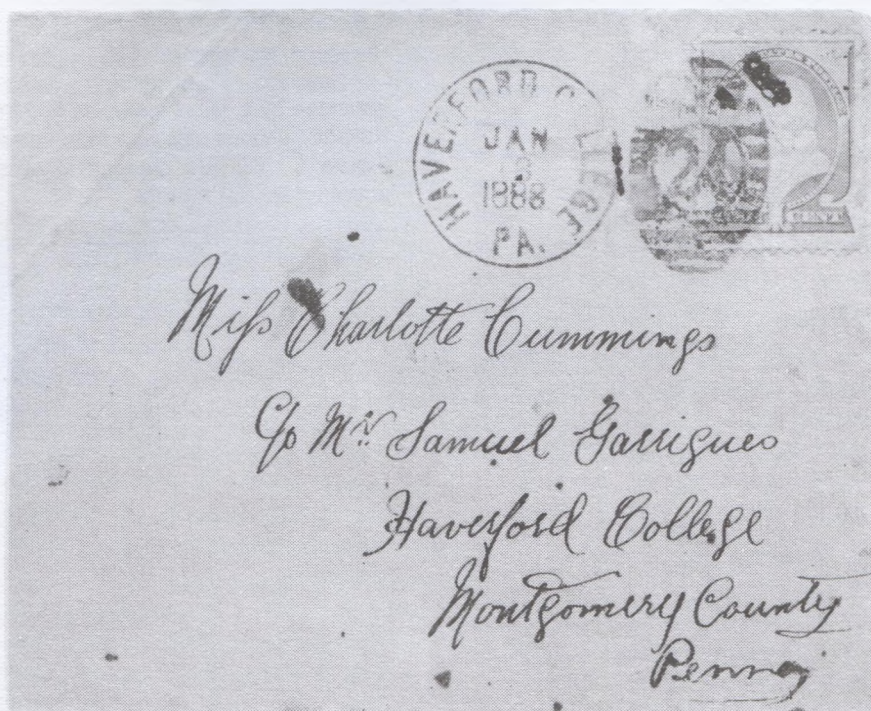 HAVERFORD COLLEGE
JAN
1888
PA.
Miss Charlotte Cummings
c/o Mr. Samuel Garrigues
Haverford College
Montgomery County
Penna